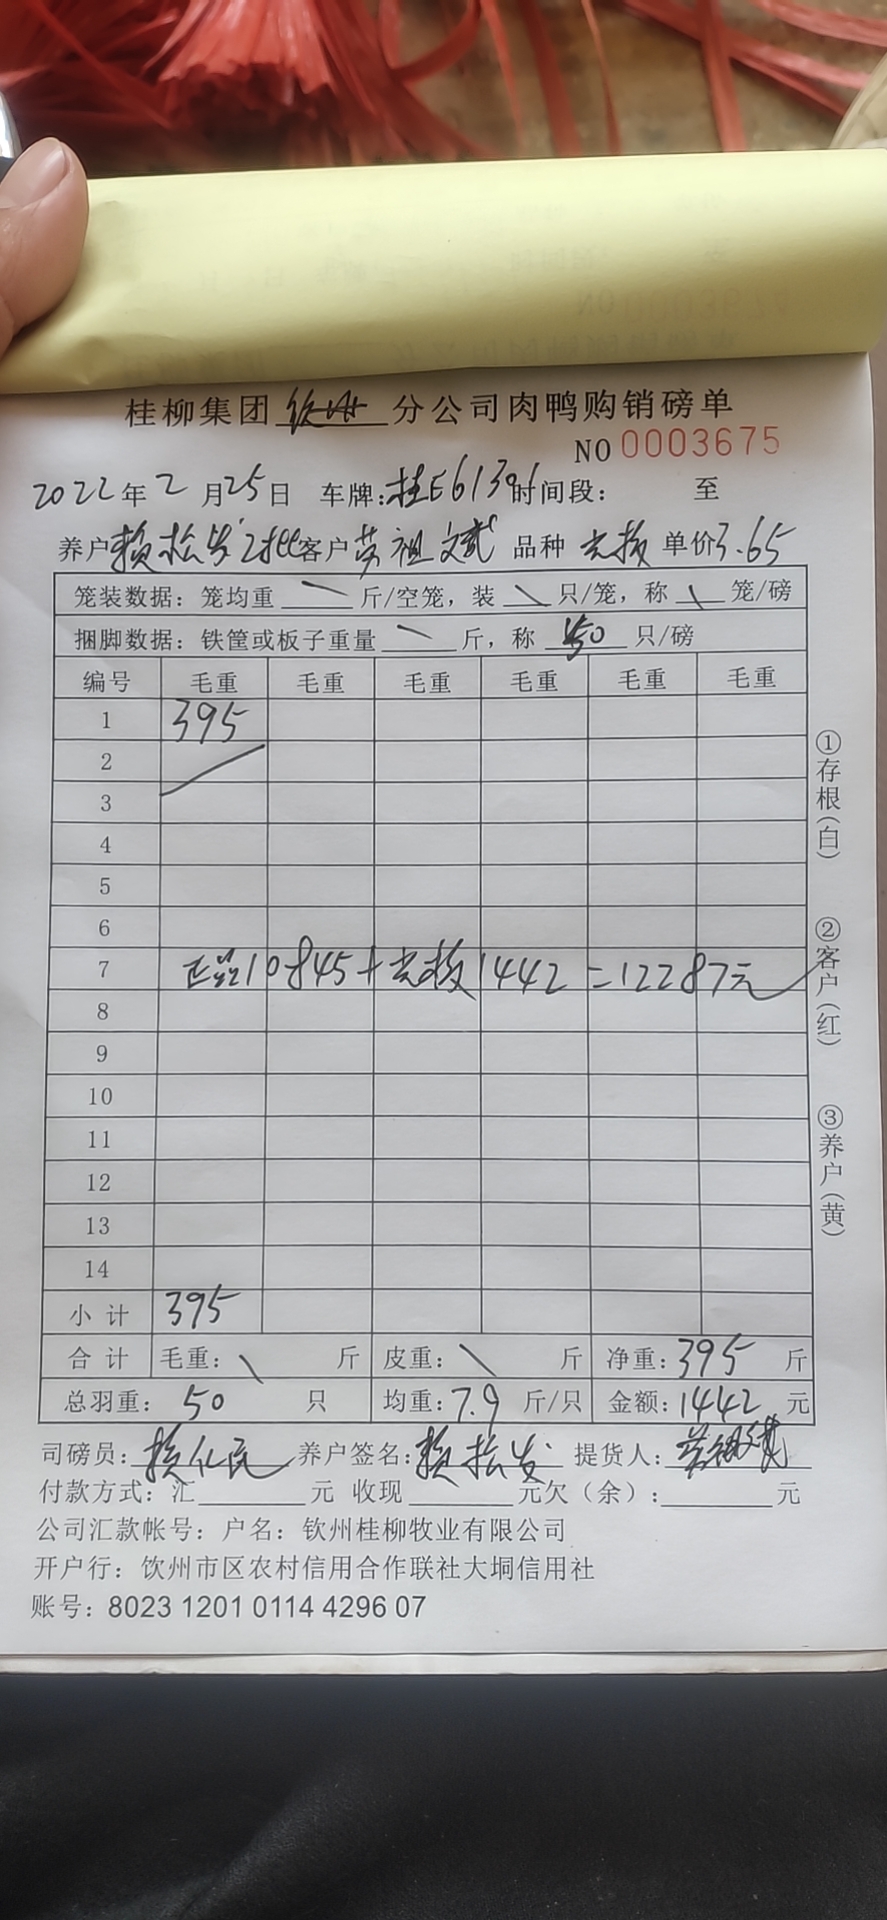 桂柳集团 钦州 分公司肉鸭购销磅单
NO 0003675
2022年2月25日 车牌:桂E61391 时间段: 至
养户赖松发 客户劳祖文武 品种 单价3.65
笼装数据:笼均重 \ 斤/空笼,装 \ 只/笼,称 \ 笼/磅
捆脚数据:铁筐或板子重量 \ 斤,称 50 只/磅
编号 毛重 毛重 毛重 毛重 毛重 毛重
1 395
2
3
4
5
6
7 正品10845+ 1442=12287元
8
9
10
11
12
13
14
小计 395
合计 毛重: \ 斤 皮重: \ 斤 净重:395 斤
总羽重: 50 只 均重:7.9 斤/只 金额:1442 元
司磅员: 养户签名:赖松发 提货人:
付款方式:汇 元 收现 元欠(余): 元
公司汇款帐号:户名:钦州桂柳牧业有限公司
开户行:饮州市区农村信用合作联社大垌信用社
账号:8023 1201 0114 4296 07
①存根(白)
②客户(红)
③养户(黄)